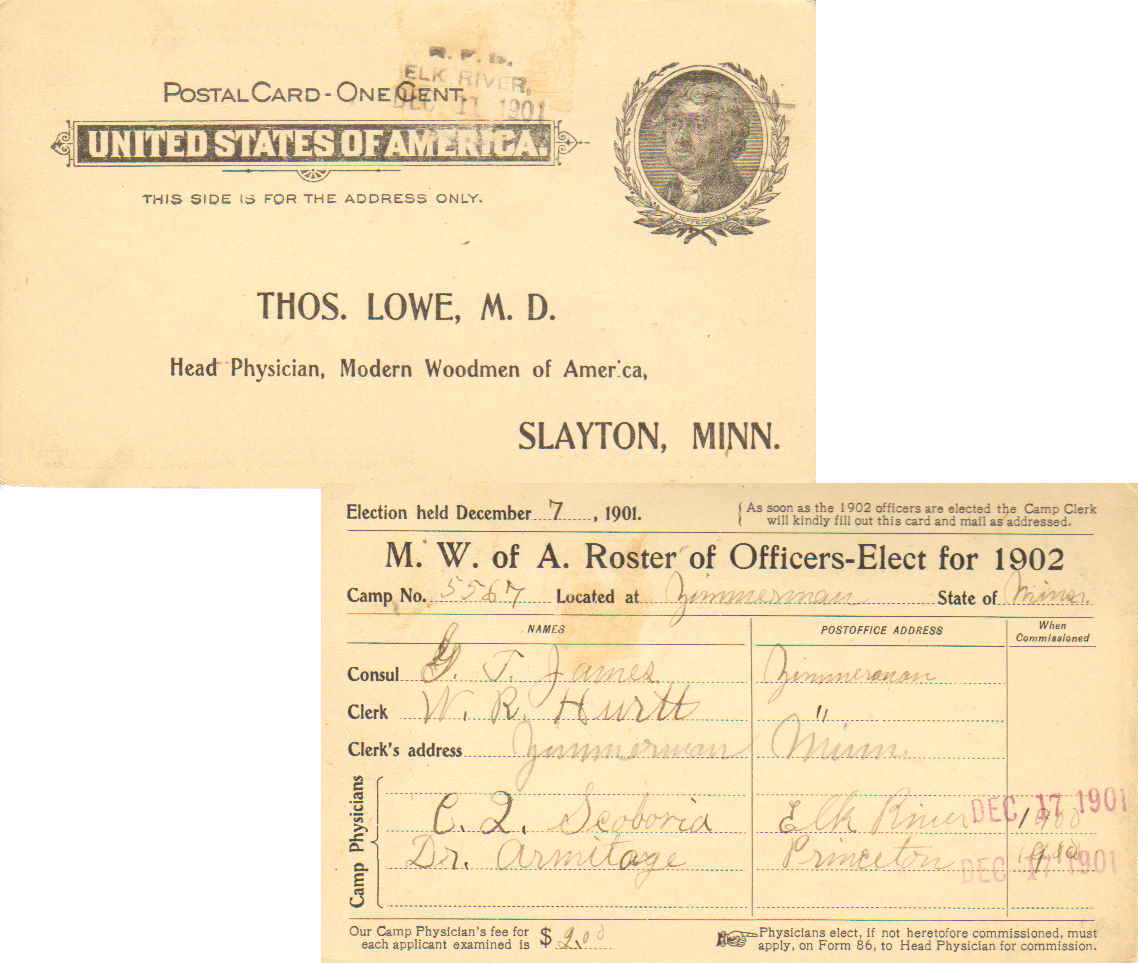 R. F. D.
ELK RIVER,
DEC 17 1901
POSTAL CARD - ONE CENT.
UNITED STATES OF AMERICA.
THIS SIDE IS FOR THE ADDRESS ONLY.
JEFFERSON
THOS. LOWE, M. D.
Head Physician, Modern Woodmen of America,
SLAYTON, MINN.
Election held December 7, 1901.
As soon as the 1902 officers are elected the Camp Clerk
will kindly fill out this card and mail as addressed.
M. W. of A. Roster of Officers-Elect for 1902
Camp No. 5567 Located at Zimmerman State of Minn.
NAMES POSTOFFICE ADDRESS When Commissioned
Consul G. T. James Zimmerman
Clerk W. R. Hurtt "
Clerk's address Zimmerman Minn.
Camp Physicians
C. Q. Scoboria Elk River 1900 DEC 17 1901
Dr. Armitage Princeton DEC 17 1901
Our Camp Physician's fee for
each applicant examined is $ 2.00
Physicians elect, if not heretofore commissioned, must
apply, on Form 86, to Head Physician for commission.